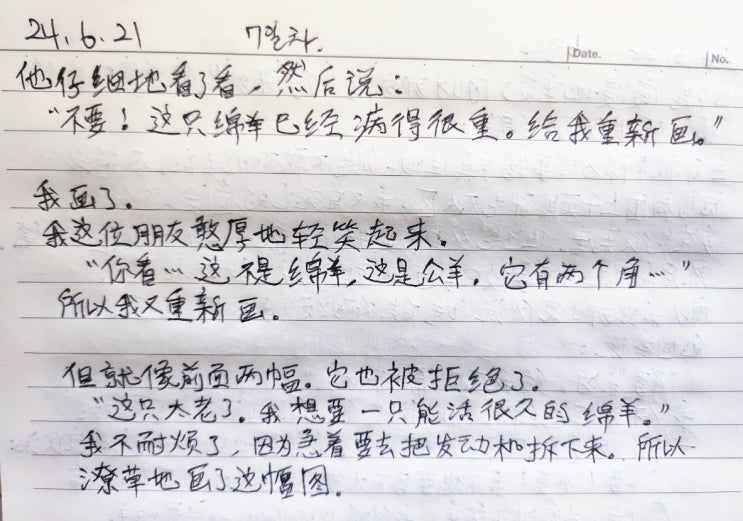 24.6.21 7일차.
Date. No.
他仔细地看了看，然后说：
“不要！这只绵羊已经病得很重。给我重新画。”
我画了。
我这位朋友憨厚地轻笑起来.
“你看…这不是绵羊，这是公羊，它有两个角…”
所以我又重新画。
但就像前面两幅。它也被拒绝了.
“这只太老了。我想要一只能活很久的绵羊。”
我不耐烦了，因为急着要去把发动机拆下来。所以
潦草地画了这幅图。